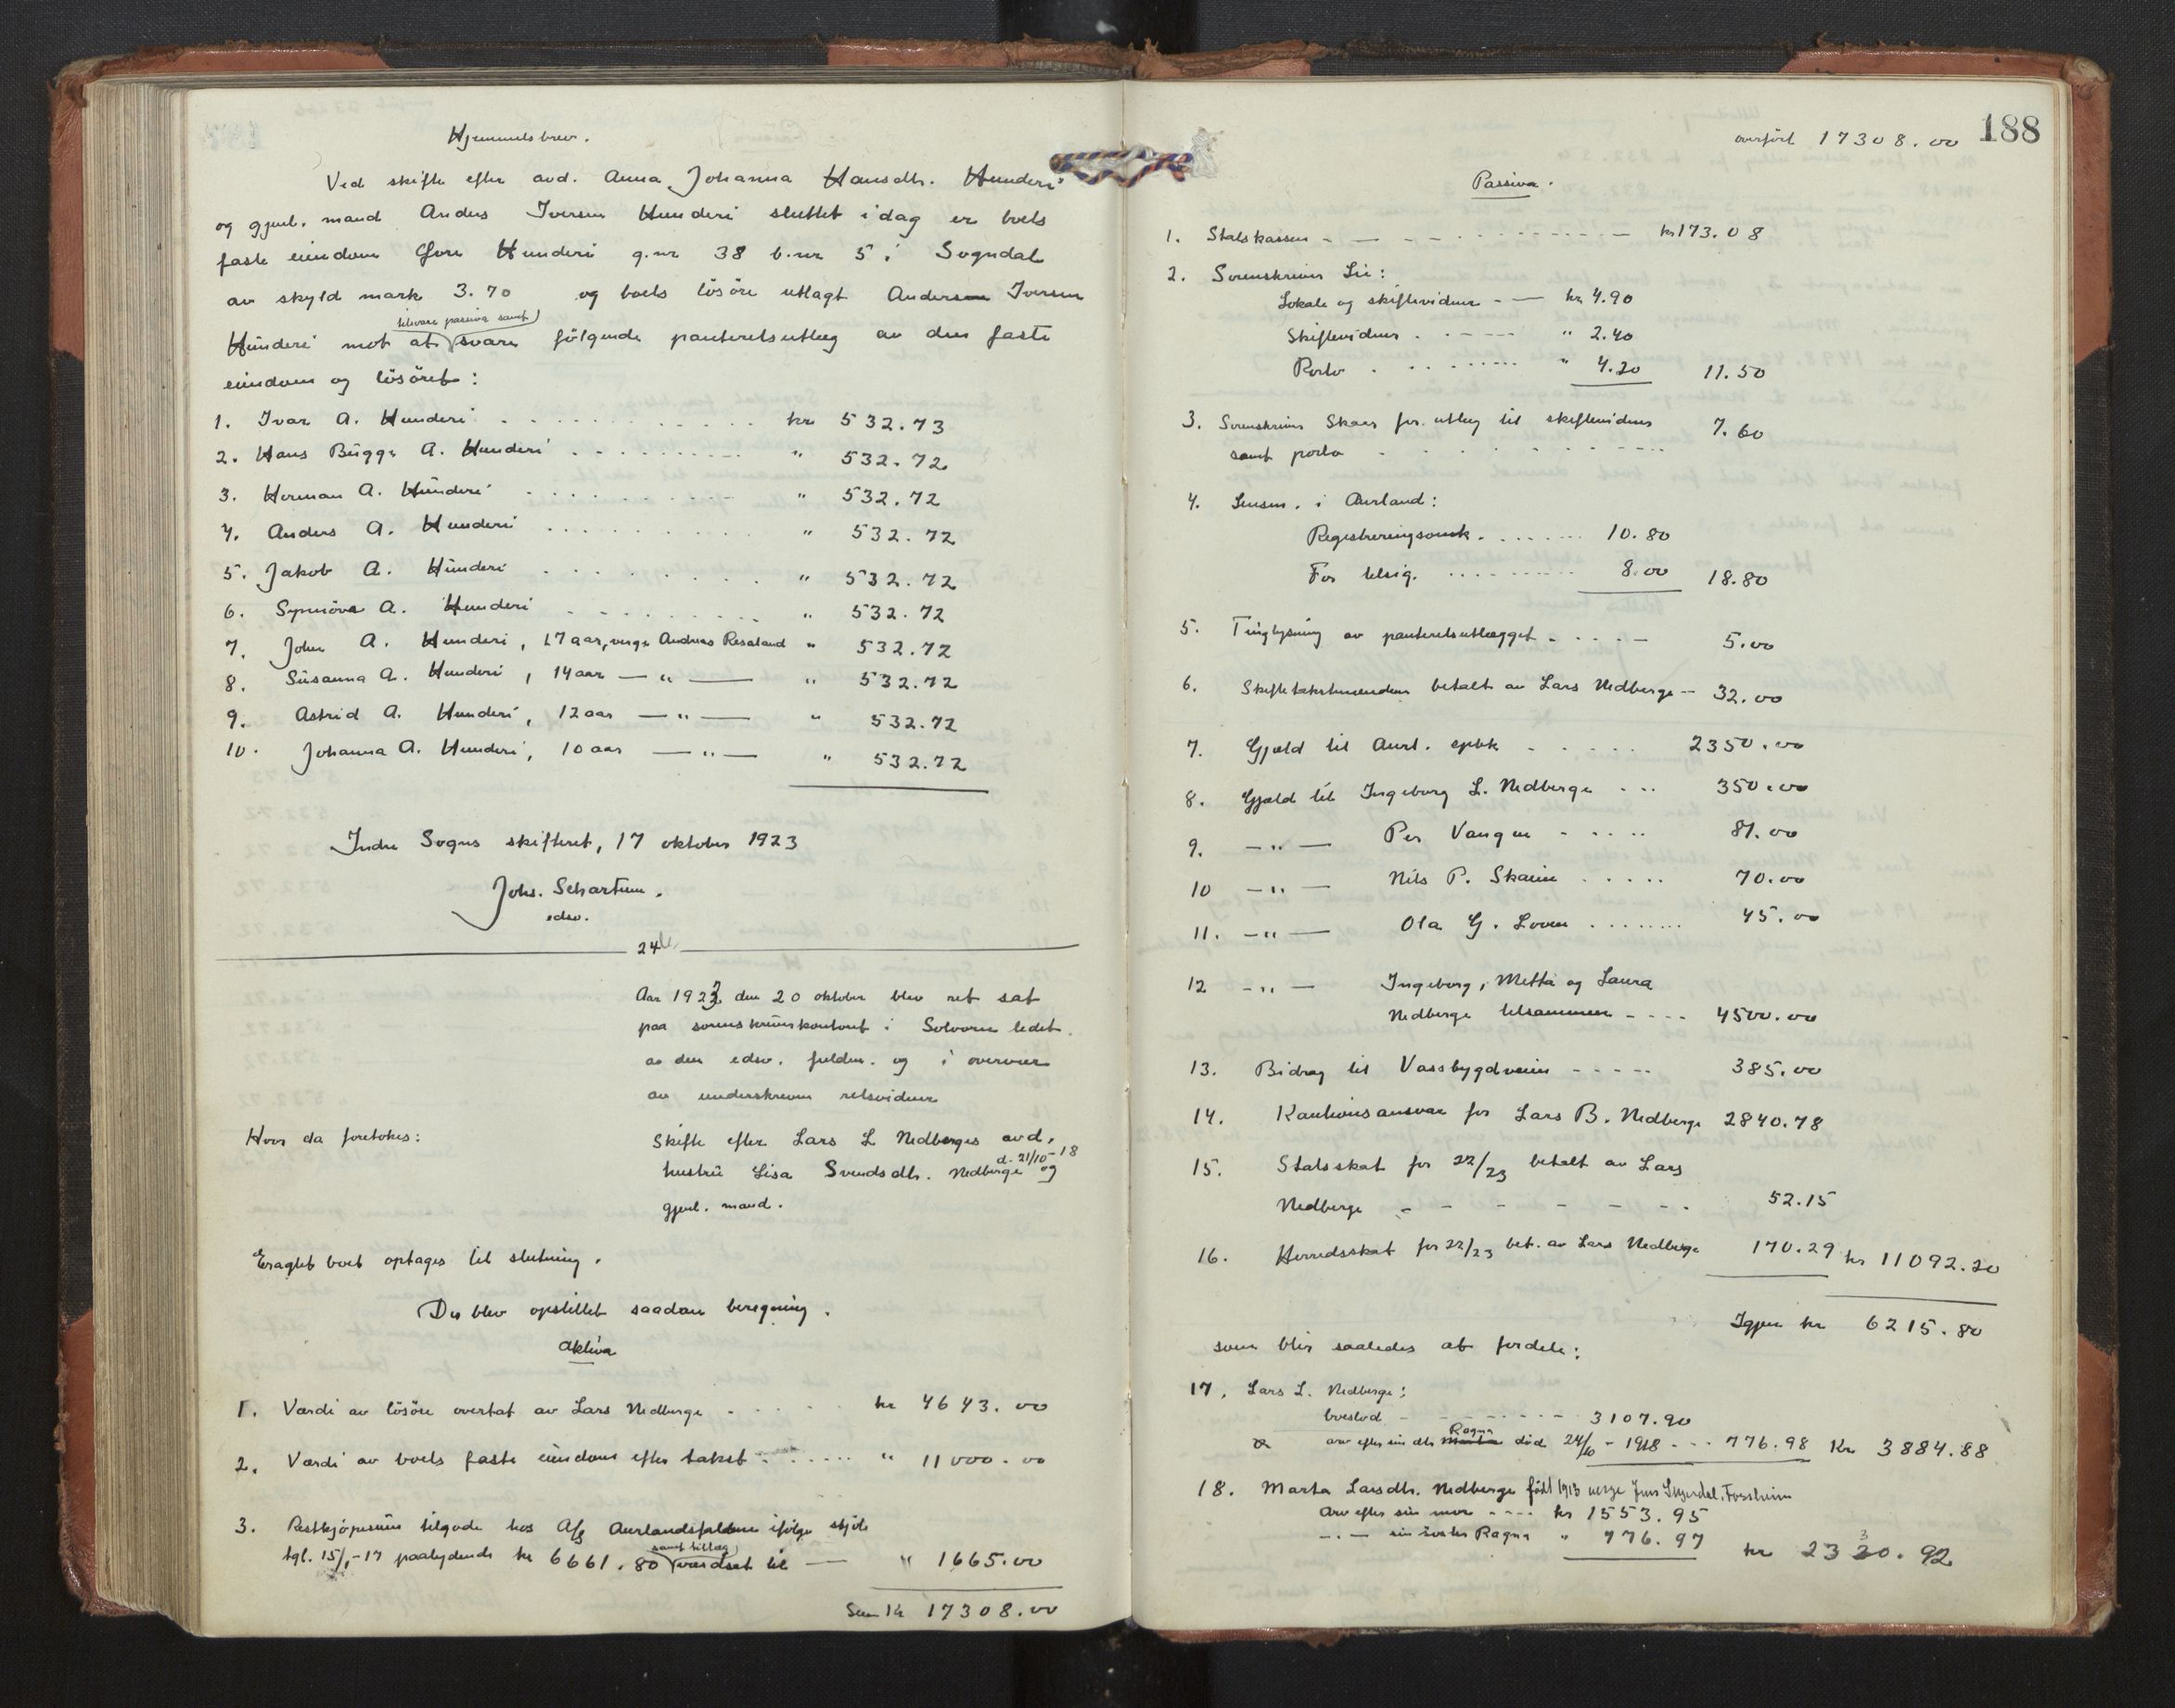 Hjemmelsbrev.
Ved skifte efter avd. Anna Johanna Hansdtr. Hunderi
og gjenl. mand Anders Iversen Hunderi sluttet idag er boets
faste eiendom Øvre Hunderi g.nr 38 b.nr 5 i Sogndal
av skyld mark 3.70 og boets lösöre utlagt Andersen Iversen
tilsvare passiva samt
Hunderi mot at svare fölgende panteretsutlæg av den faste
eiendom og lösöret:
1. Ivar A. Hunderi kr 532.73
2. Hans Bugge A. Hunderi " 532.72
3. Herman A. Hunderi " 532.72
4. Anders A. Hunderi " 532.72
5. Jakob A. Hunderi " 532.72
6. Synnöva A. Hunderi " 532.72
7. John A. Hunderi, 17 aar, verge Andreas Resaland " 532.72
8. Susanna A. Hunderi, 14 aar — " — " 532.72
9. Astrid A. Hunderi, 12 aar — " — " 532.72
10. Johanna A. Hunderi, 10 aar — " — " 532.72
Indre Sogns skifteret, 17 oktober 1923
Johs. Schartum.
edsv.
24
Aar 1923 den 20 oktober blev ret sat
paa sorenskriverkontoret i Solvorn ledet
av den edsv. fuldm. og i overvær
av underskrevne retsvidner
Hvor da foretokes:
Skifte efter Lars L Nedberges avd.
d. 21/10-18
hustru Lisa Svendsdtr. Nedberge og
gjenl. mand.
Eragtet boet optages til slutning.
Der blev opstillet saadan beregning.
Aktiva
1. Værdi av lösöre overtat av Lars Nedberge kr 4643.00
2. Værdi av boets faste eiendom efter takst " 11000.00
3. Restkjöpesum tilgode hos A/S Aurlandsfaldene ifölge skjöte
samt tillæg
tgl. 15/1-17 paalydende kr 6661.80 værdset til — " 1665.00
Sum Kr 17308.00
188
overfört 17308.00
Passiva.
1. Statskassen kr 173.08
2. Sorenskriver Lie:
Lokale og skiftevidner — kr 4.90
Skiftevidner " 2.40
Porto " 4.20 11.50
3. Sorenskriver Skaar for utlæg til skiftevidner 7.60
samt porto
4. Lensm. i Aurland:
Registreringsomk. 10.80
For tilsig. 8.00 18.80
5. Tinglysning av panteretsutlægget 5.00
6. Skiftetakstmændene betalt av Lars Nedberge — 32.00
7. Gjæld til Aurl. spbk 2350.00
8. Gjæld til Ingeborg L. Nedberge 350.00
9. — " — Per Vangen 81.00
10 — " — Nils P. Skaim 70.00
11. — " — Ola G. Loven 45.00
12 — " — Ingeborg, Metta og Laura
Nedberge tilsammen 4500.00
13. Bidrag til Vassbygdveien 385.00
14. Kautionsansvar for Lars B. Nedberge 2840.78
15. Statsskat for 22/23 betalt av Lars
Nedberge 52.15
16. Herredsskat for 22/23 bet. av Lars Nedberge 170.29 kr 11092.20
Igjen kr 6215.80
som blir saaledes at fordele:
17. Lars L. Nedberge:
boeslod 3107.90
Ragna
arv efter sin dtr. Marta död 24/10-1918 776.98 Kr 3884.88
18. Marta Larsdtr. Nedberge födt 1913 verge Jens Skjerdal, Forsheim
Arv efter sin mor kr 1553.95
— " — sin söster Ragna " 776.97 kr 2330.92